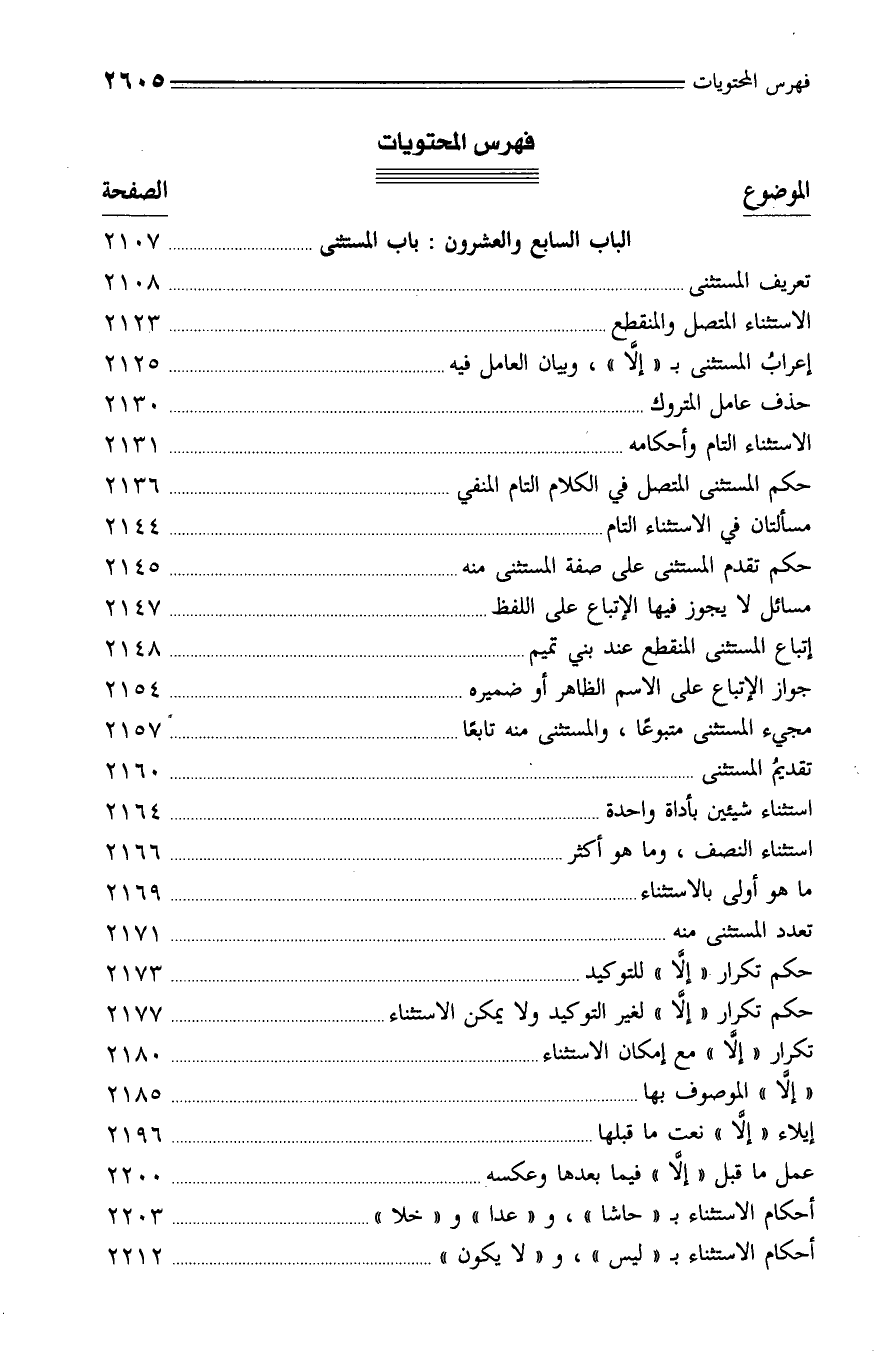 فهرس المحتويات ٢٦٠٥
فهرس المحتويات
الموضوع الصفحة
الباب السابع والعشرون : باب المستثنى ٢١٠٧
تعريف المستثنى ٢١٠٨
الاستثناء المتصل والمنقطع ٢١٢٣
إعرابُ المستثنى بـ « إلَّا » ، وبيان العامل فيه ٢١٢٥
حذف عامل المتروك ٢١٣٠
الاستثناء التام وأحكامه ٢١٣١
حكم المستثنى المتصل في الكلام التام المنفي ٢١٣٦
مسألتان في الاستثناء التام ٢١٤٤
حكم تقدم المستثنى على صفة المستثنى منه ٢١٤٥
مسائل لا يجوز فيها الإتباع على اللفظ ٢١٤٧
إتباع المستثنى المنقطع عند بني تميم ٢١٤٨
جواز الإتباع على الاسم الظاهر أو ضميره ٢١٥٤
مجيء المستثنى متبوعًا ، والمستثنى منه تابعًا ٢١٥٧
تقديمُ المستثنى ٢١٦٠
استثناء شيئين بأداة واحدة ٢١٦٤
استثناء النصف ، وما هو أكثر ٢١٦٦
ما هو أولى بالاستثناء ٢١٦٩
تعدد المستثنى منه ٢١٧١
حكم تكرار « إلَّا » للتوكيد ٢١٧٣
حكم تكرار « إلَّا » لغير التوكيد ولا يمكن الاستثناء ٢١٧٧
تكرار « إلَّا » مع إمكان الاستثناء ٢١٨٠
« إلَّا » الموصوف بها ٢١٨٥
إيلاء « إلَّا » نعت ما قبلها ٢١٩٦
عمل ما قبل « إلَّا » فيما بعدها وعكسه ٢٢٠٠
أحكام الاستثناء بـ « حاشا » ، و « عدا » و « خلا » ٢٢٠٣
أحكام الاستثناء بـ « ليس » ، و « لا يكون » ٢٢١٢